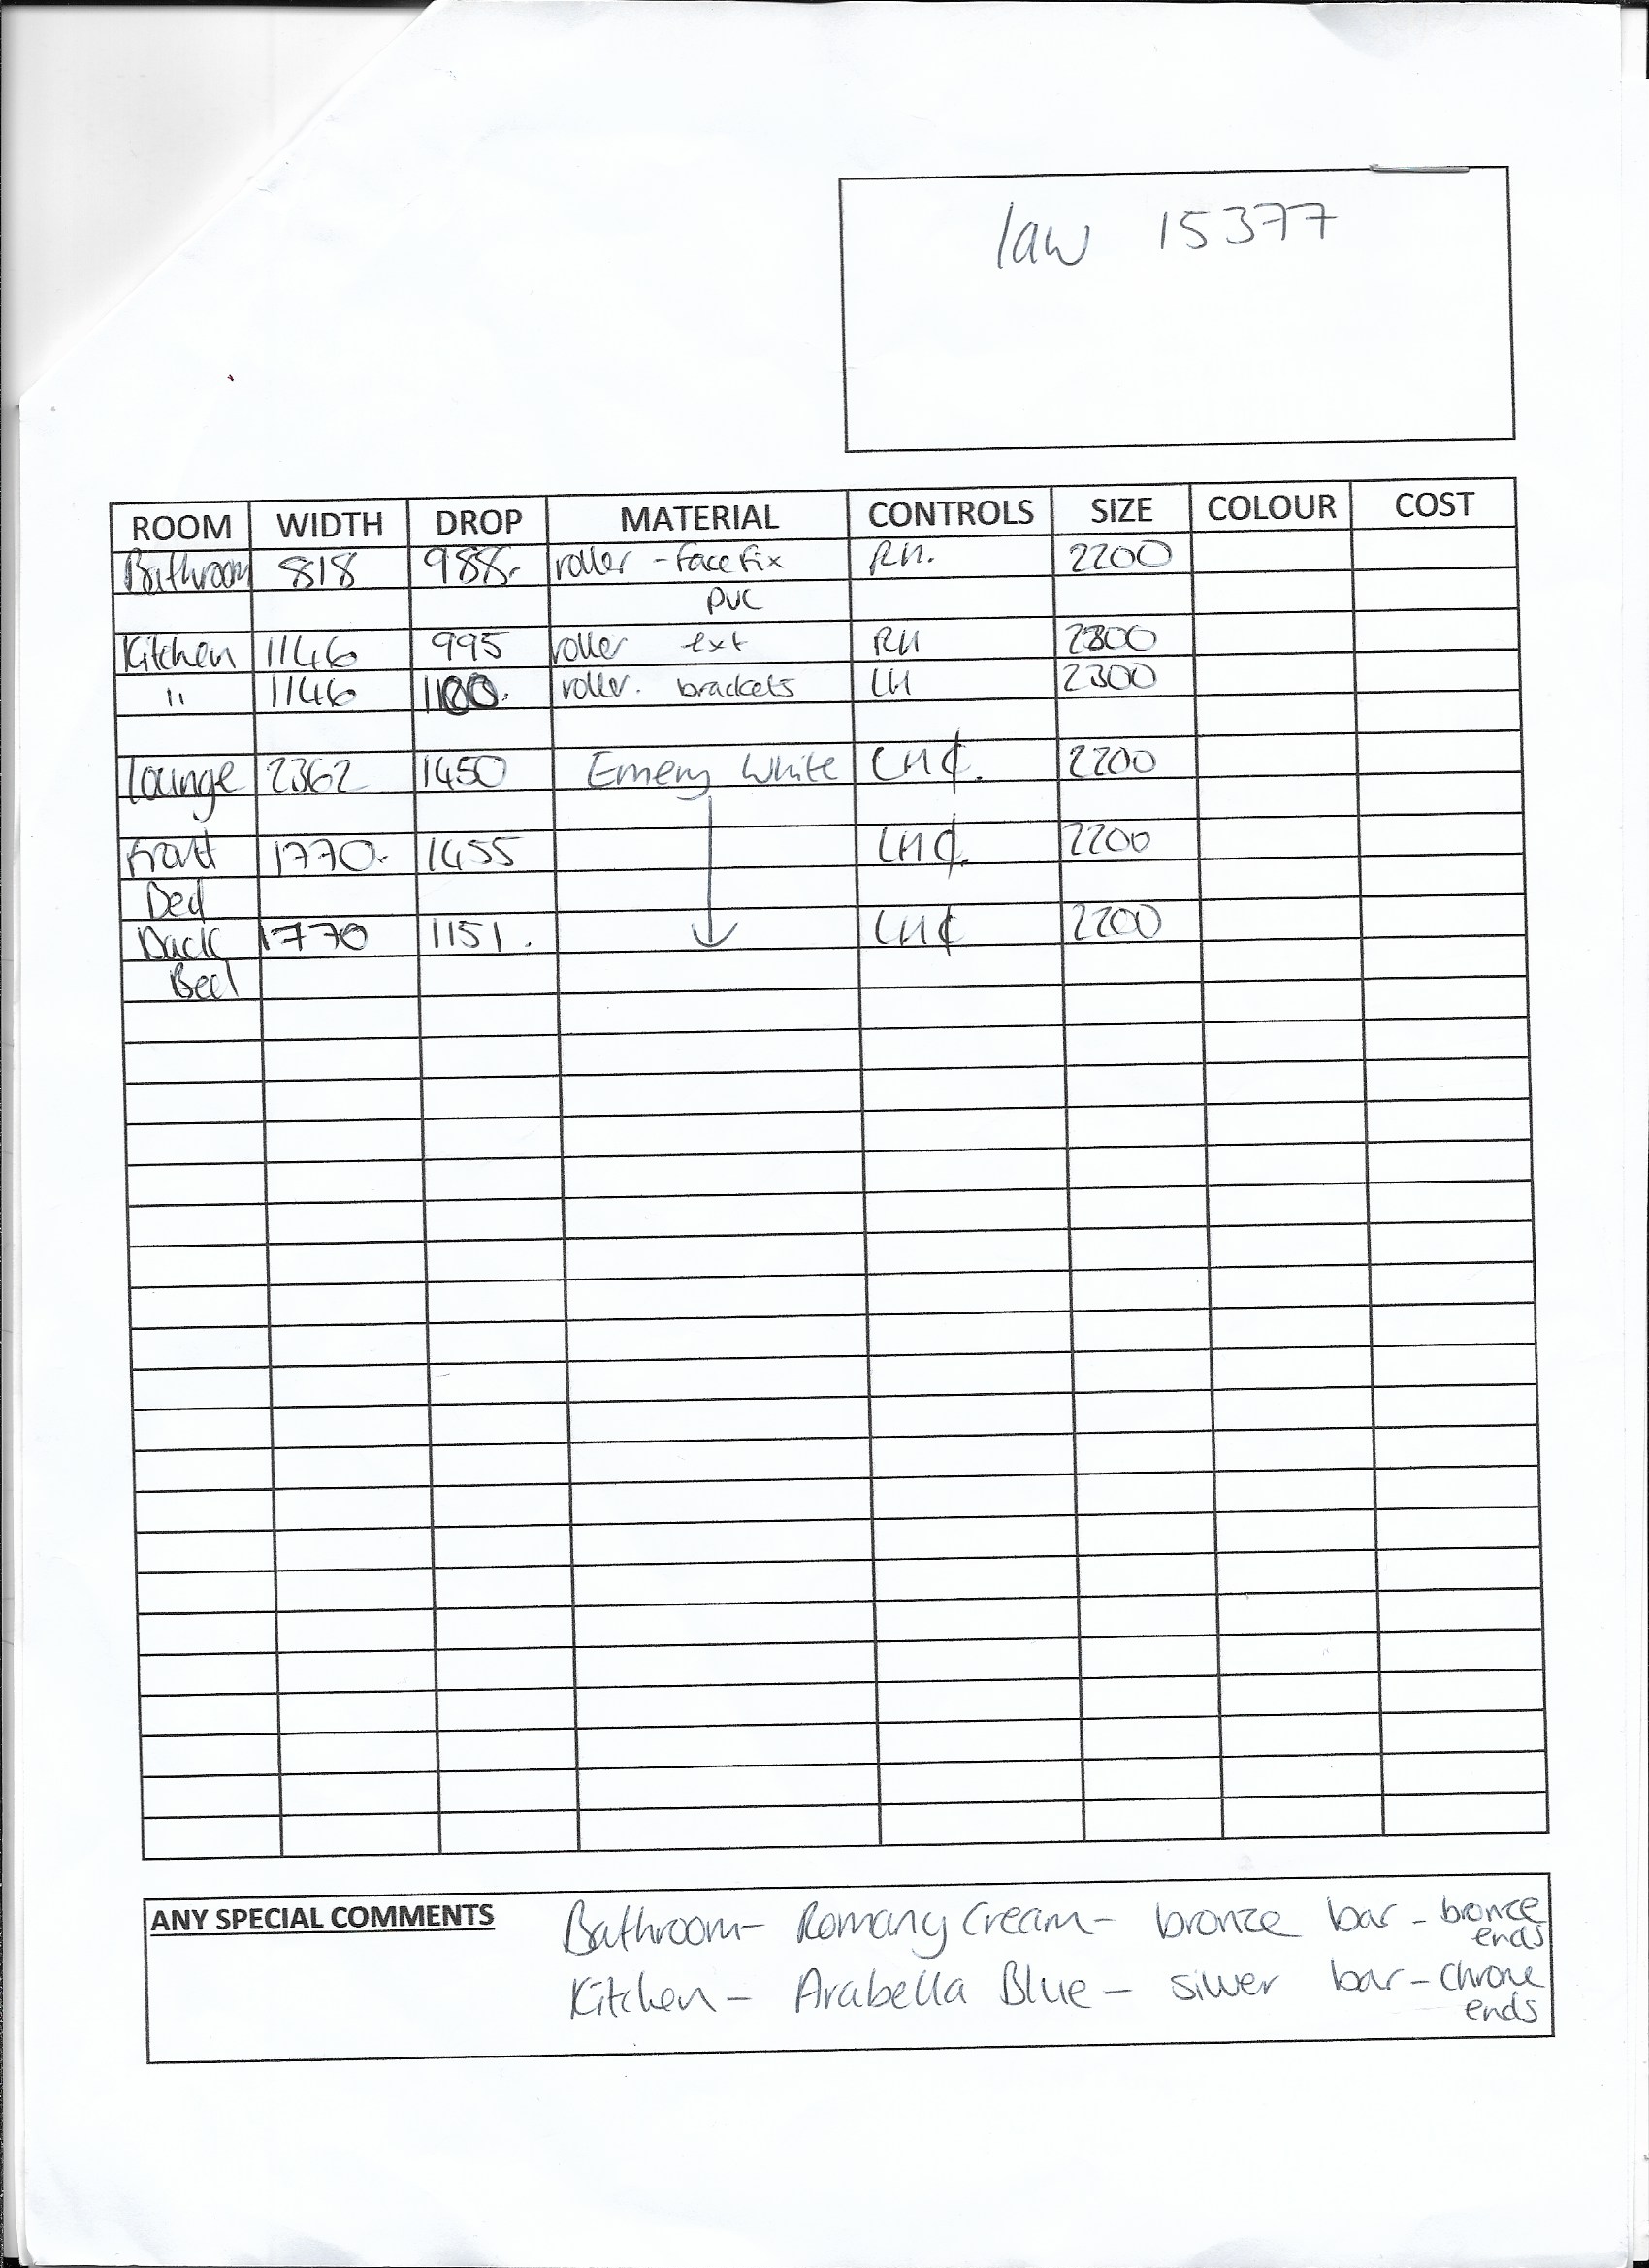 law 15377
ROOM WIDTH DROP MATERIAL CONTROLS SIZE COLOUR COST
Bathroom 818 988. roller - face fix RH. 2200
PVC
Kitchen 1146 995 roller ext RH 2300
" 1146 1100. roller. brackets LH 2300
Lounge 2362 1450 Emery White LH₵. 2200
Front 1770. 1455 LH₵. 2200
Bed
Back 1770 1151. LH₵ 2200
Bed
ANY SPECIAL COMMENTS Bathroom - Romany Cream - bronze bar - bronze
ends
Kitchen - Arabella Blue - silver bar - chrome
ends